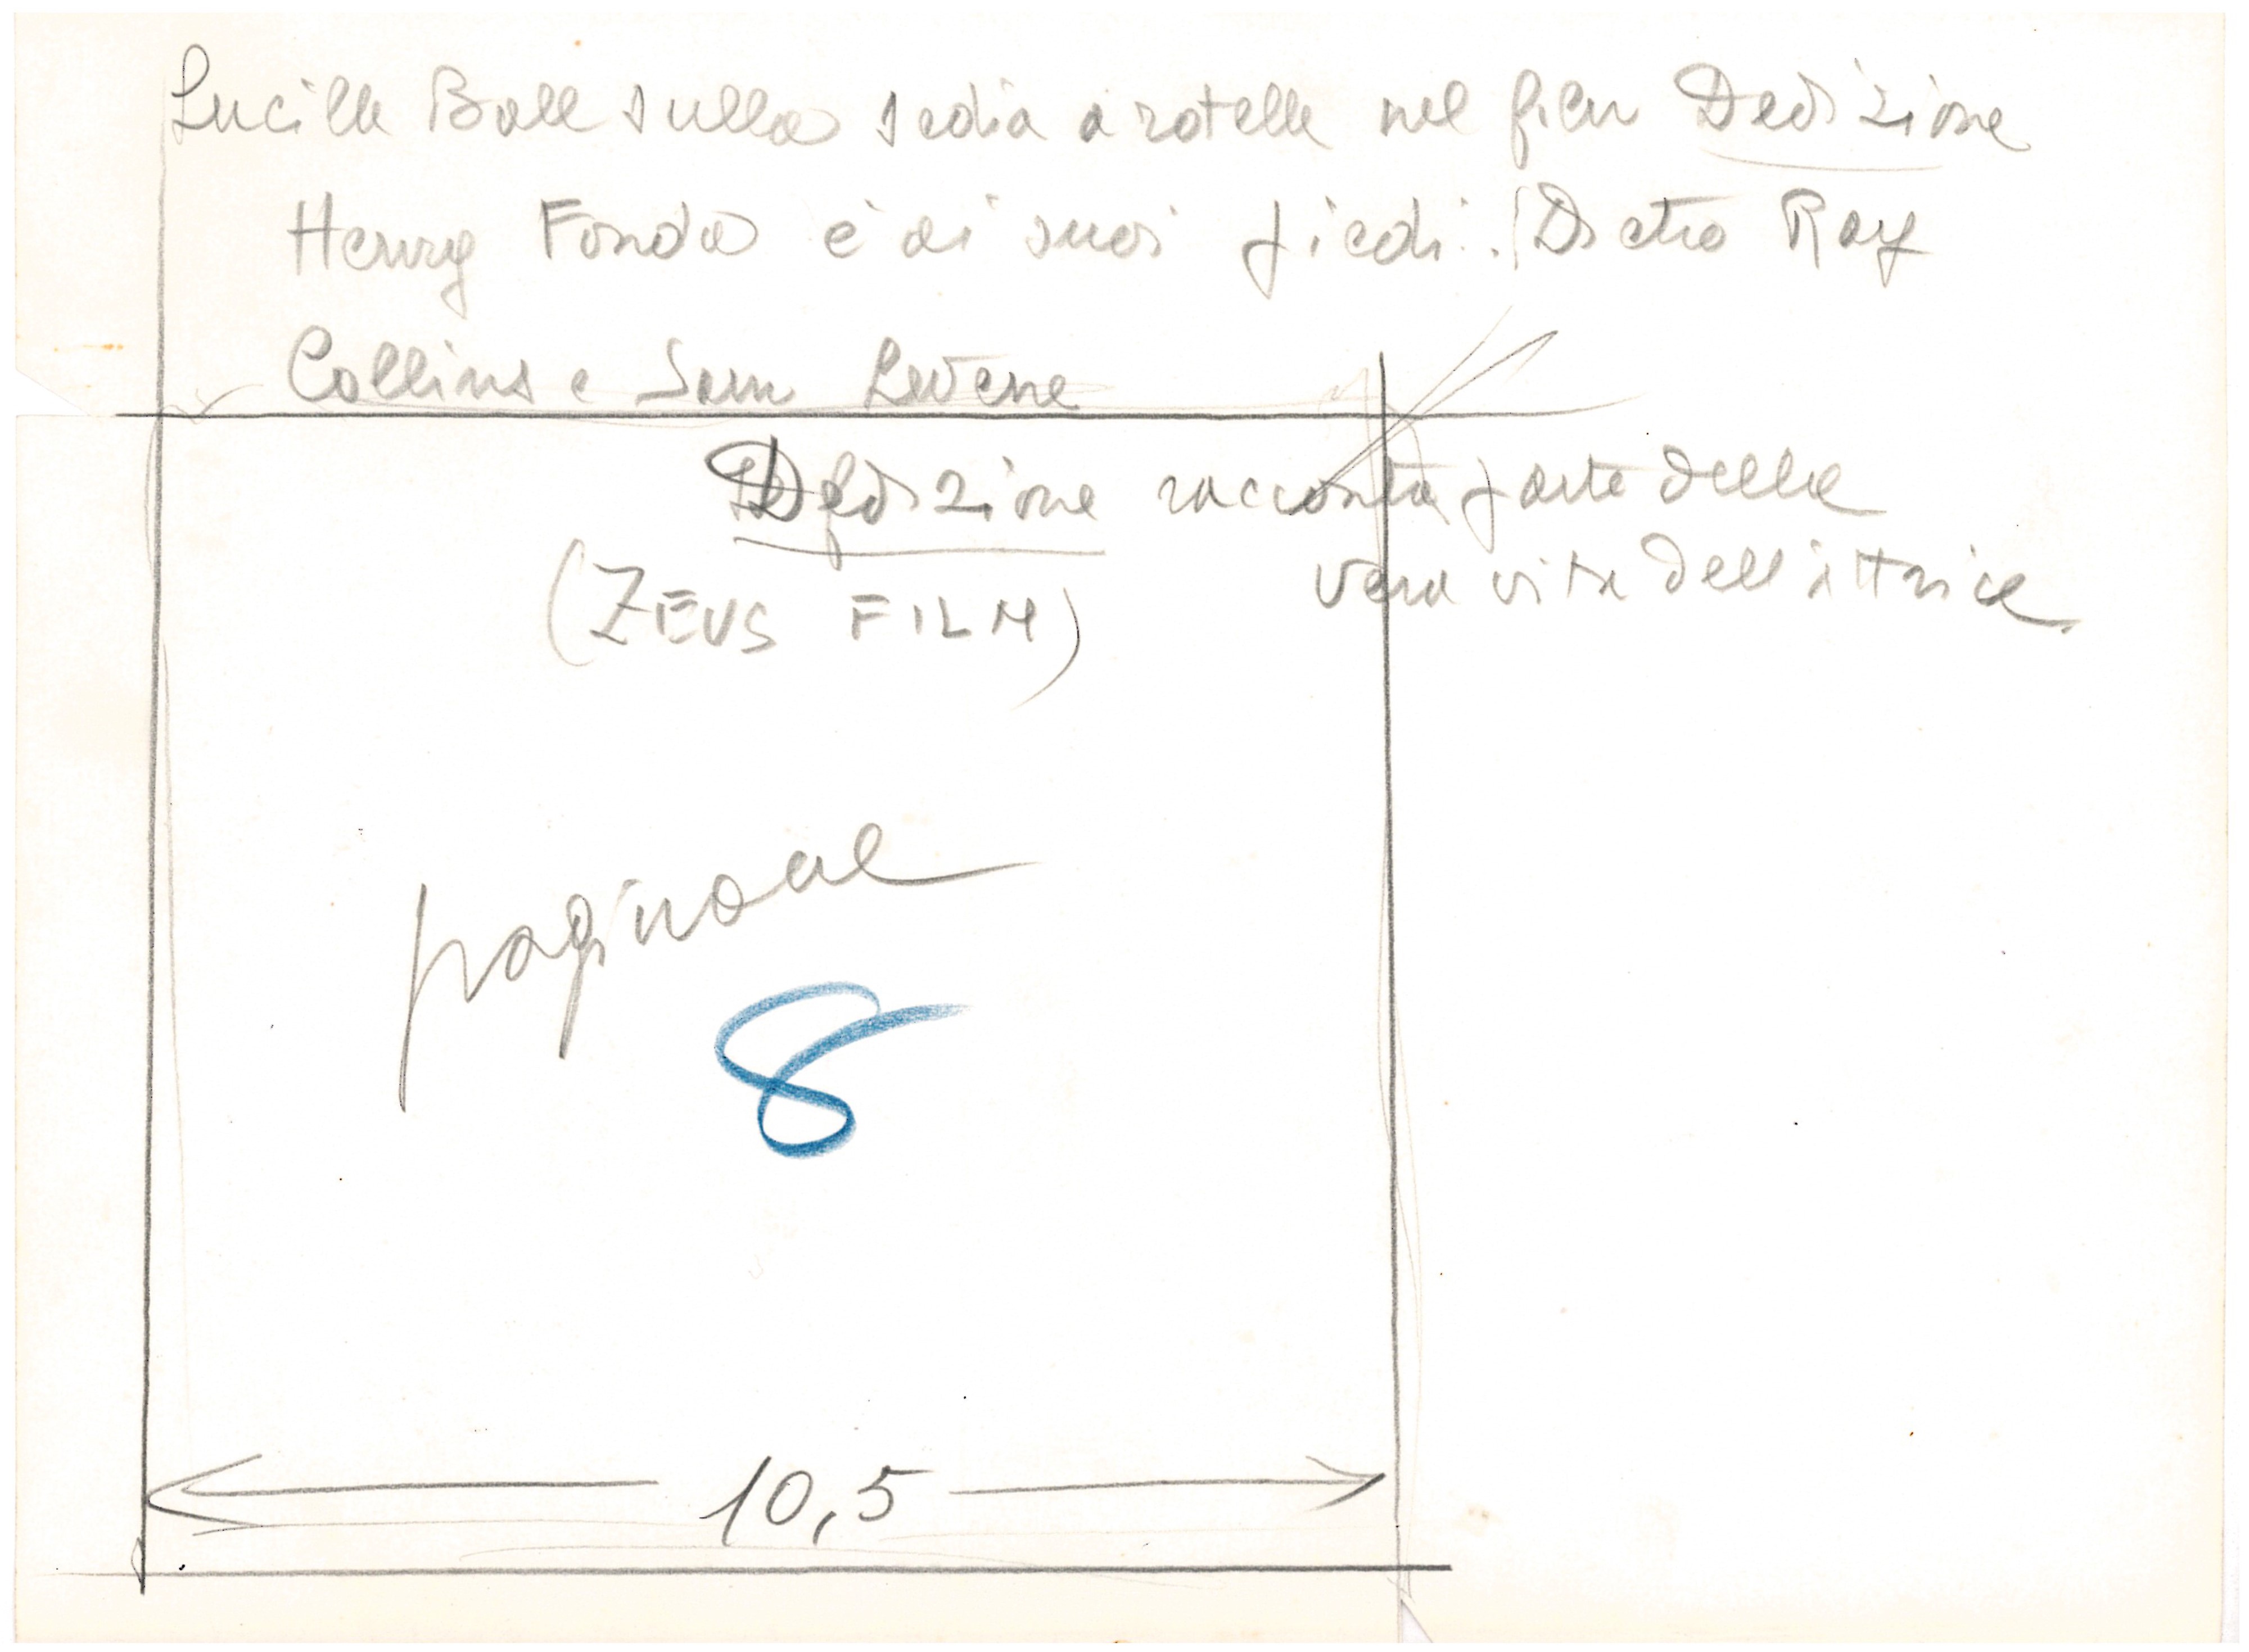 Lucille Ball sulla sedia a rotelle nel film Dedizione
Henry Fonda è ai suoi piedi. Dietro Ray
Collins e Sam Levene
Dedizione racconta parte della
vera vita dell'attrice
(ZEUS FILM)
8
10,5